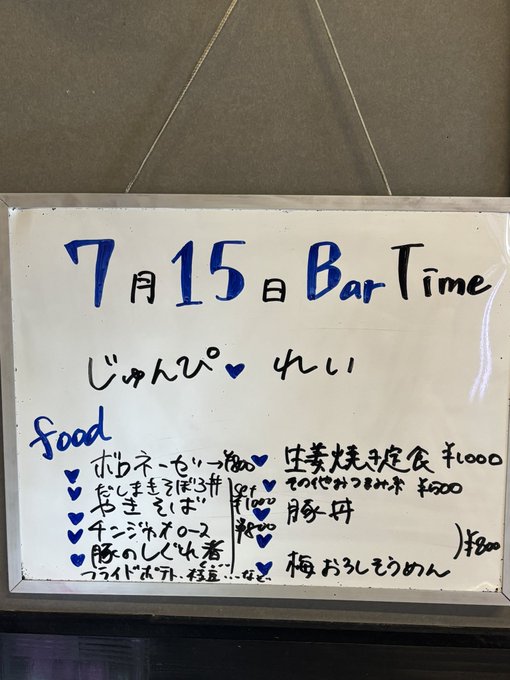 7月15日 Bar Time
じゅんぴ♥れい
food
♥ ボロネーゼ→¥800
♥ だしまきそぼろ丼
♥ やきそば
♥ チンジャオロース
♥ 豚のしぐれ煮
フライドポテト、枝豆…など
set
¥1000
¥800
♥ 生姜焼き定食 ¥1000
その他おつまみ ¥500
♥ 豚丼
♥ 梅おろしそうめん
)¥800